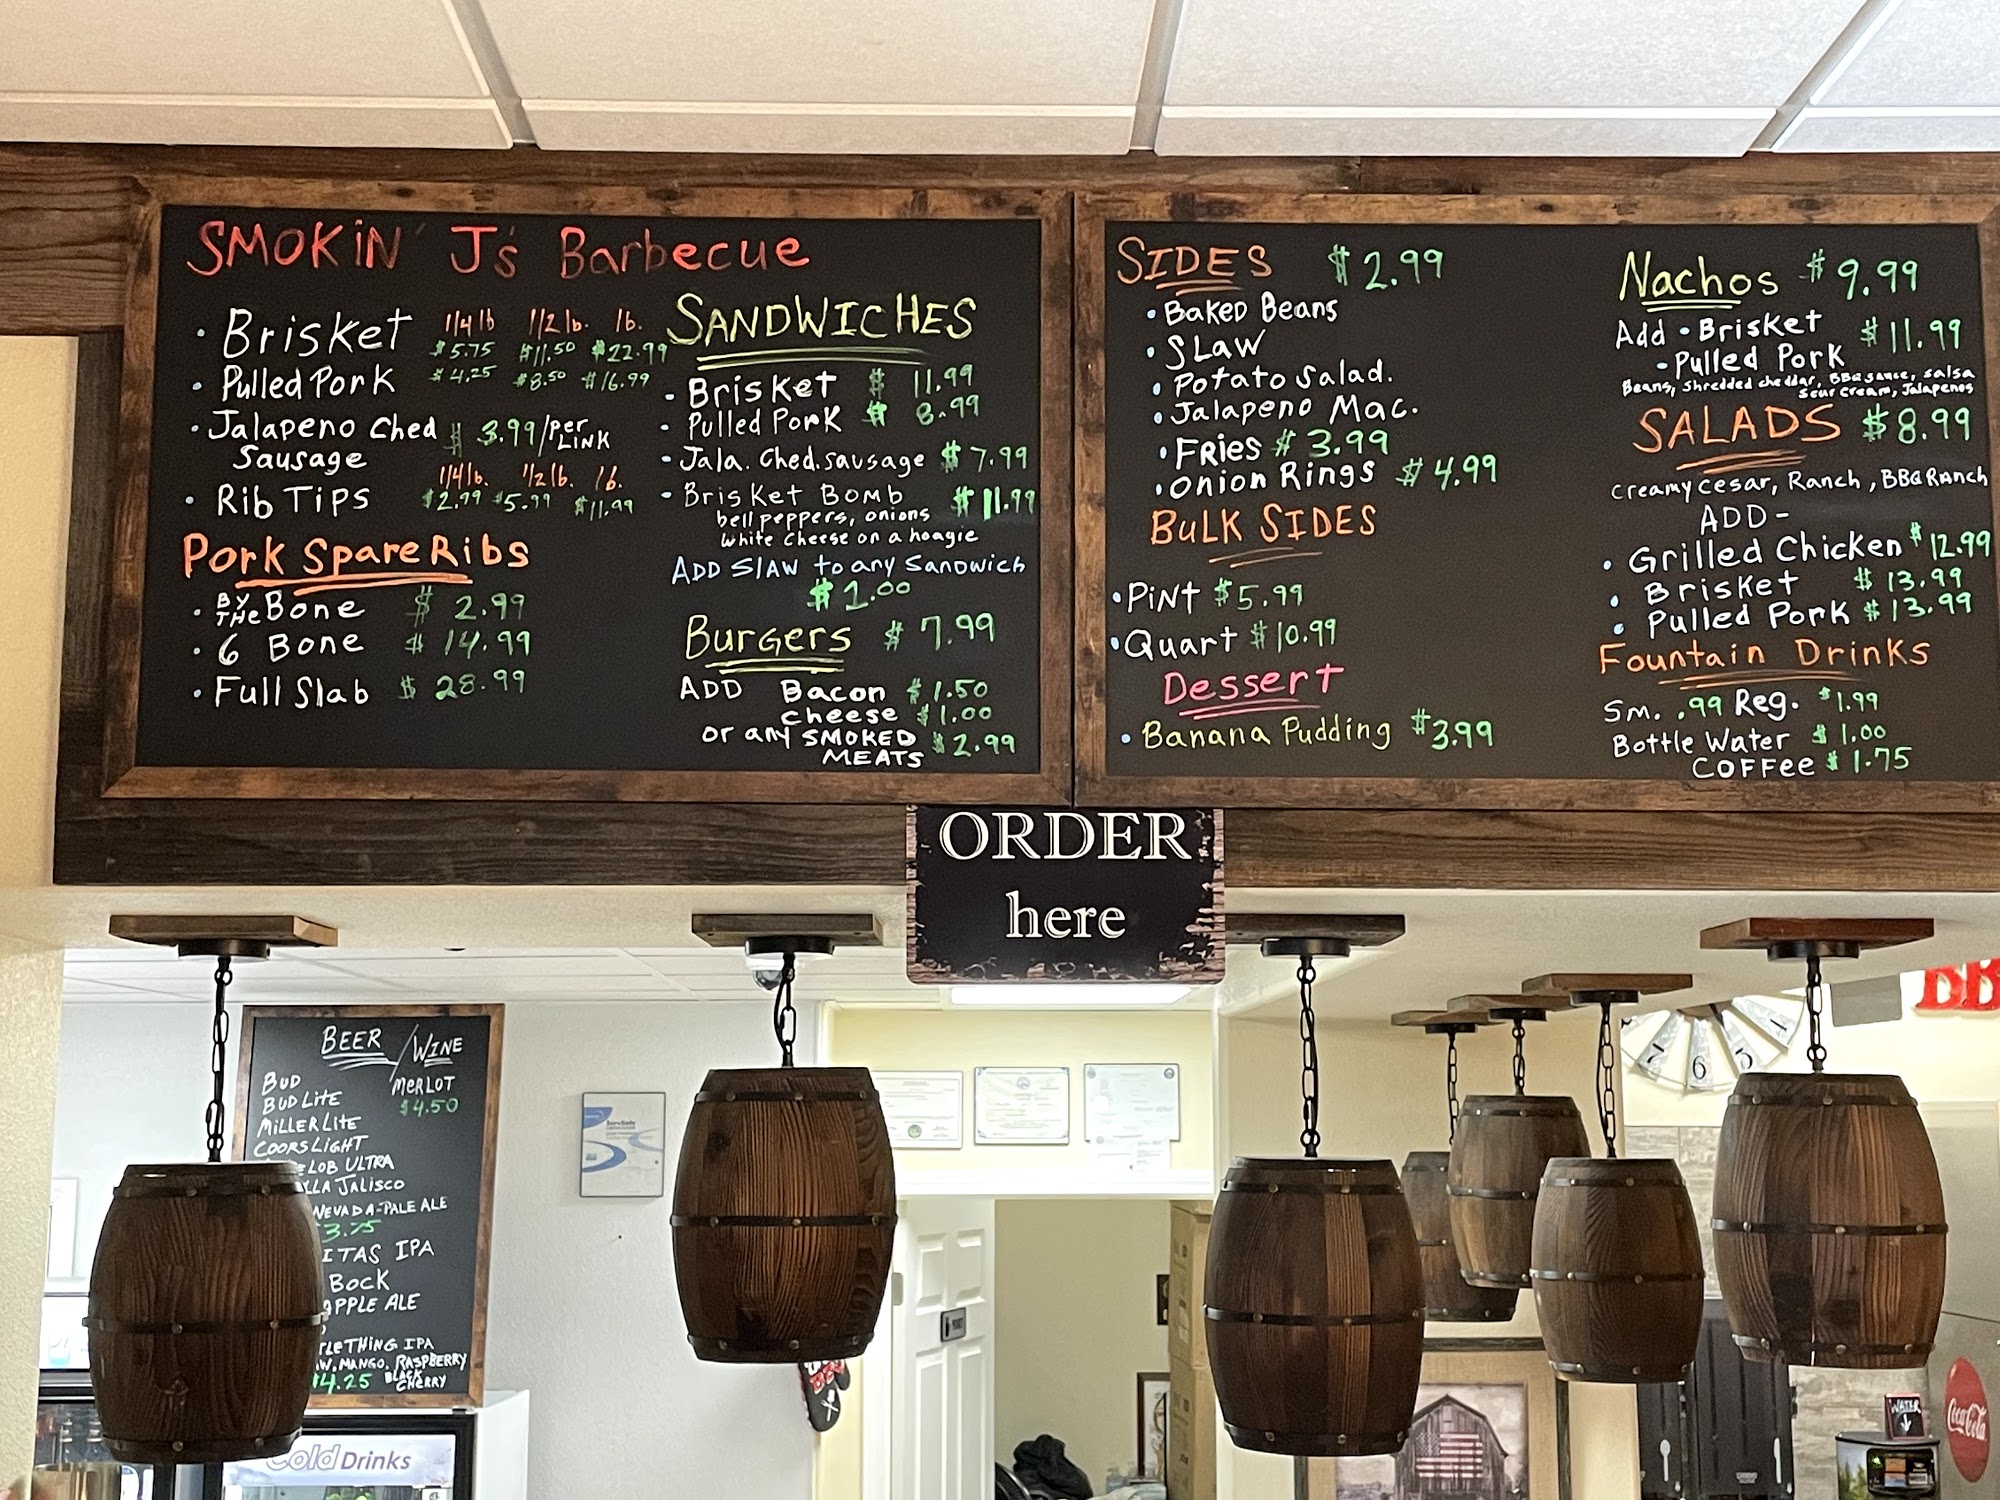 SMOKiN' J's Barbecue
• Brisket 1/4 lb 1/2 lb. lb.
$5.75 $11.50 $22.99
• Pulled Pork $4.25 $8.50 $16.99
• Jalapeno Ched $3.99/PER LINK
Sausage
1/4 lb. 1/2 lb. lb.
• Rib Tips $2.99 $5.99 $11.99
Pork Spare Ribs
• BY THE Bone $2.99
• 6 Bone $14.99
• Full Slab $28.99
SANDWICHES
• Brisket $11.99
• Pulled Pork $8.99
• Jala. Ched. Sausage $7.99
• Brisket Bomb $11.99
bell peppers, onions
white cheese on a hoagie
ADD Slaw to any Sandwich
$1.00
Burgers $7.99
ADD Bacon $1.50
Cheese $1.00
or any SMOKED $2.99
MEATS
SIDES $2.99
• Baked Beans
• Slaw
• Potato Salad.
• Jalapeno Mac.
• Fries $3.99
• Onion Rings $4.99
Bulk SIDES
• Pint $5.99
• Quart $10.99
Dessert
• Banana Pudding $3.99
Nachos $9.99
Add • Brisket $11.99
- Pulled Pork
Beans, Shredded cheddar, BBQ sauce, salsa
sour cream, Jalapenos
SALADS $8.99
creamy cesar, Ranch, BBQ Ranch
ADD -
• Grilled Chicken $12.99
• Brisket $13.99
• Pulled Pork $13.99
Fountain Drinks
Sm. .99 Reg. $1.99
Bottle Water $1.00
COFFee $1.75
ORDER
here
BEER / WINE
BUD
BUD LITE
MILLER LITE
COORS LIGHT
LOB ULTRA
LLA JALISCO
NEVADA-PALE ALE
3.75
ITAS IPA
BOCK
APPLE ALE
TLE THING IPA
W, MANGO, RASPBERRY
4.25 BLACK CHERRY
MERLOT
$4.50
Cold Drinks
BB
7 6 5
WATER
Coca-Cola